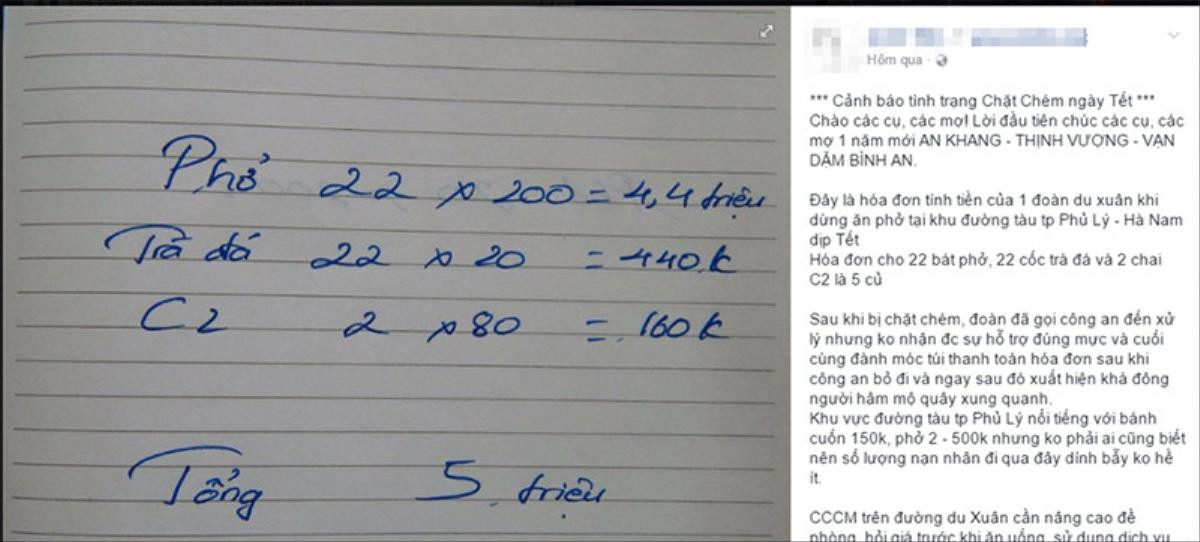 Phở 22 x 200 = 4,4 triệu
Trà đá 22 x 20 = 440.k
C2 2 x 80 = 160k
Tổng 5 triệu
Hôm qua
*** Cảnh báo tình trạng Chặt Chém ngày Tết ***
Chào các cụ, các mợ! Lời đầu tiên chúc các cụ, các
mợ 1 năm mới AN KHANG - THỊNH VƯỢNG - VẠN
DẶM BÌNH AN.
Đây là hóa đơn tính tiền của 1 đoàn du xuân khi
dừng ăn phở tại khu đường tàu tp Phủ Lý - Hà Nam
dịp Tết
Hóa đơn cho 22 bát phở, 22 cốc trà đá và 2 chai
C2 là 5 củ
Sau khi bị chặt chém, đoàn đã gọi công an đến xử
lý nhưng ko nhận đc sự hỗ trợ đúng mực và cuối
cùng đành móc túi thanh toán hóa đơn sau khi
công an bỏ đi và ngay sau đó xuất hiện khá đông
người hâm mộ quây xung quanh.
Khu vực đường tàu tp Phủ Lý nổi tiếng với bánh
cuốn 150k, phở 2 - 500k nhưng ko phải ai cũng biết
nên số lượng nạn nhân đi qua đây dính bẫy ko hề
ít.
CCCM trên đường du Xuân cần nâng cao đề
phòng, hỏi giá trước khi ăn uống, sử dụng dịch vụ